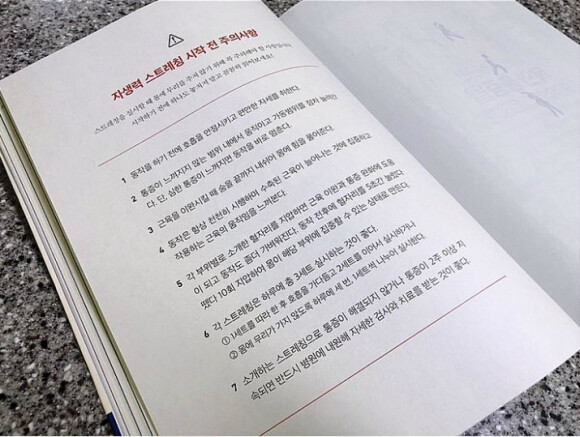 자생력 스트레칭 시작 전 주의사항
스트레칭을 실시할 때 몸에 무리를 주지 않기 위해 꼭 주의해야 할 사항들이다.
시작하기 전에 하나도 놓치지 말고 꼼꼼히 읽어보세요!
1 동작을 하기 전에 호흡을 안정시키고 편안한 자세를 취한다.
2 통증이 느껴지지 않는 범위 내에서 동작하고 가동범위를 점차 늘려간
다. 단, 심한 통증이 느껴지면 동작을 바로 멈춘다.
3 근육을 이완시킬 때 숨을 끝까지 내쉬어 몸에 힘을 풀어준다.
4 동작은 항상 천천히 시행하며 수축된 근육이 늘어나는 것에 집중하고
작용하는 근육의 움직임을 느껴본다.
5 각 부위별로 소개한 혈자리를 지압하면 근육 이완과 통증 완화에 도움
이 되고 동작도 좀더 가벼워진다. 동작 전후에 혈자리를 5초간 눌렀다
뗐다 10회 지압하여 몸이 해당 부위에 집중할 수 있는 상태로 만든다.
6 각 스트레칭은 하루에 총 3세트 실시하는 것이 좋다.
① 1세트를 따라 한 후 호흡을 가다듬고 2세트를 이어서 실시하거나
② 몸에 무리가 가지 않도록 하루에 세 번, 1세트씩 나누어 실시한다.
7 소개하는 스트레칭으로 통증이 해결되지 않거나 통증이 2주 이상 지
속되면 반드시 병원에 내원해 자세한 검사와 치료를 받는 것이 좋다.